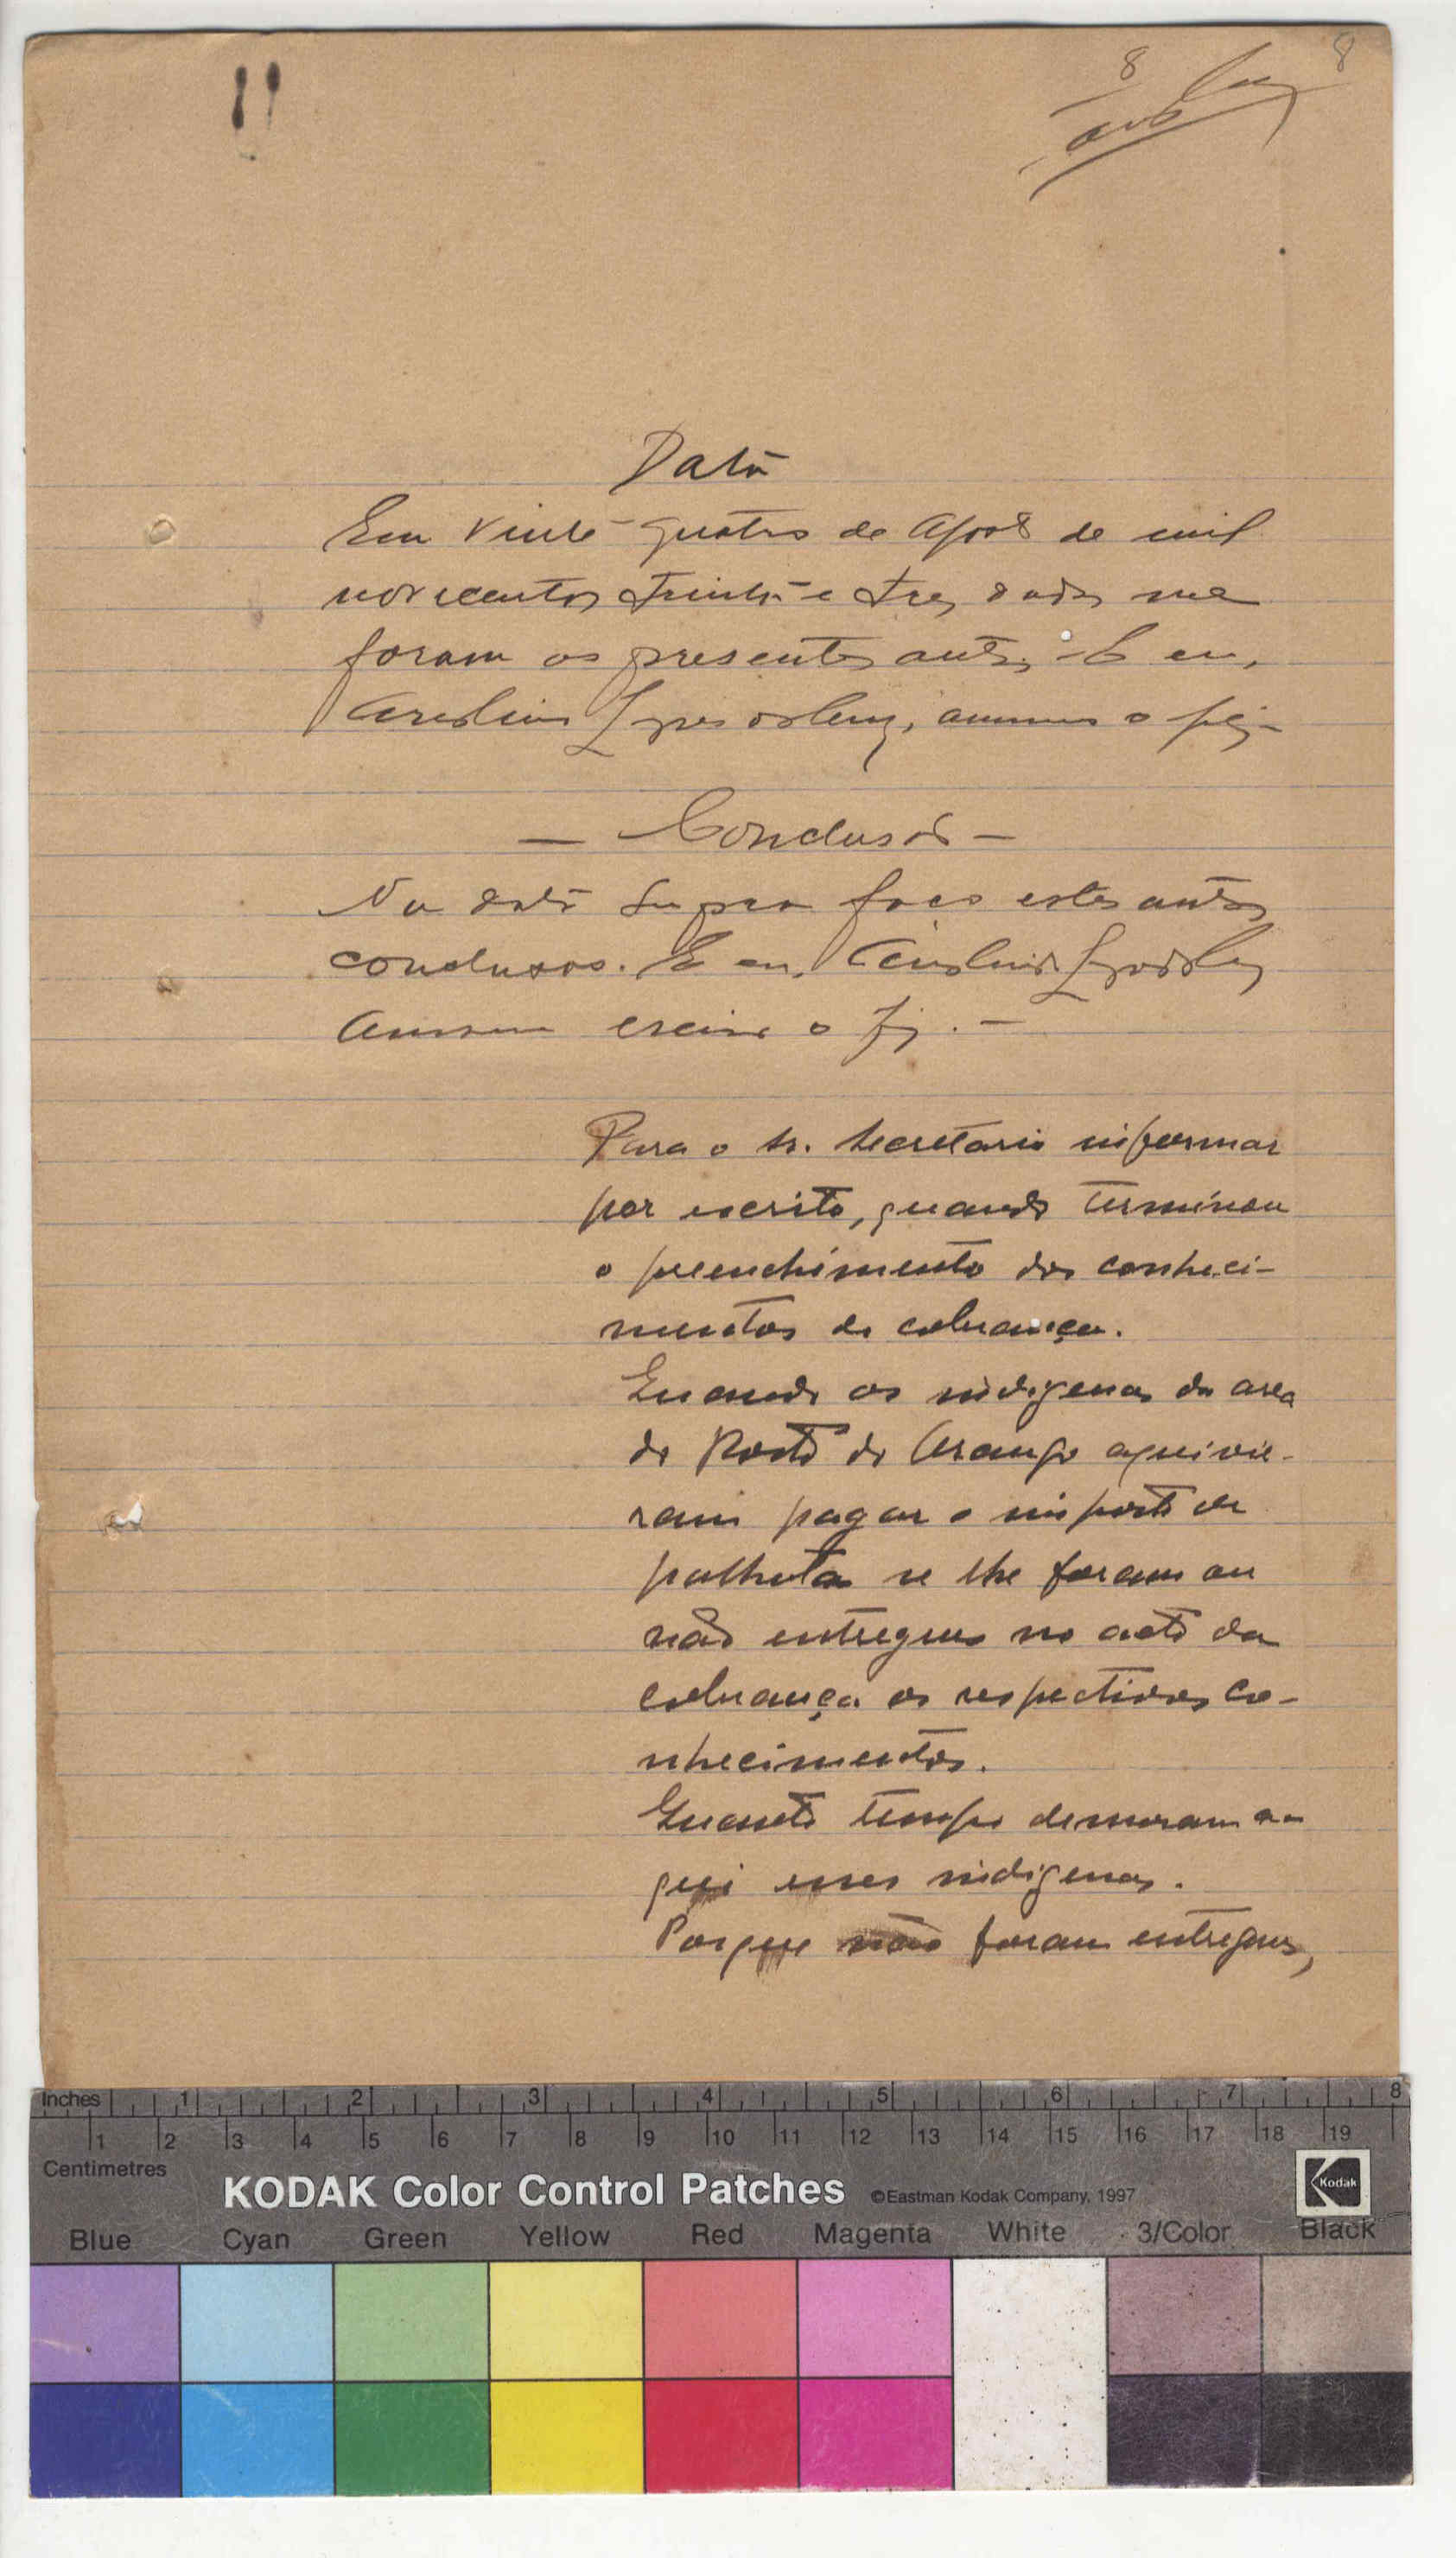 8 8
Data
Em vinte quatro de de mil
novecentos trinta e tres, dados me
foram os presentes autos. E eu,
o fiz-
— Conclusão —
Na data supra faço estes autos
conclusos. E eu,
o fiz. —
Para o sr. secretario informar
por escrito, quando terminou
o preenchimento dos conheci-
mentos de cobrança.
Quando os indigenas da area
do Posto do aqui vie-
ram pagar o imposto de
palhota se lhe foram ou
não entregues no acto da
cobrança os respectivos co-
nhecimentos.
Quanto tempo demoram a-
qui esses indigenas.
Porque não foram entregues,
Inches 1 2 3 4 5 6 7 8
1 2 3 4 5 6 7 8 9 10 11 12 13 14 15 16 17 18 19
Centimetres
KODAK Color Control Patches ©Eastman Kodak Company, 1997 Kodak
Blue Cyan Green Yellow Red Magenta White 3/Color Black